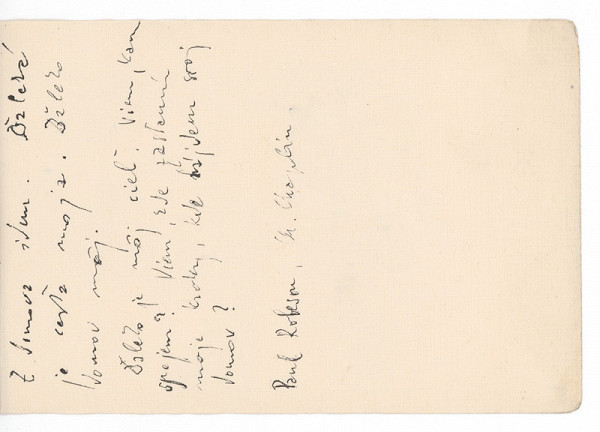 Z domova idem. Ďaleká
je cesta moja. Ďaleko
domov môj.
Ďaleko je môj cieľ. Viem, kam
spejem? Viem, kde zastanú
moje kroky, kde nájdem svoj
domov?
Paul Robeson, Ch. Chaplin,